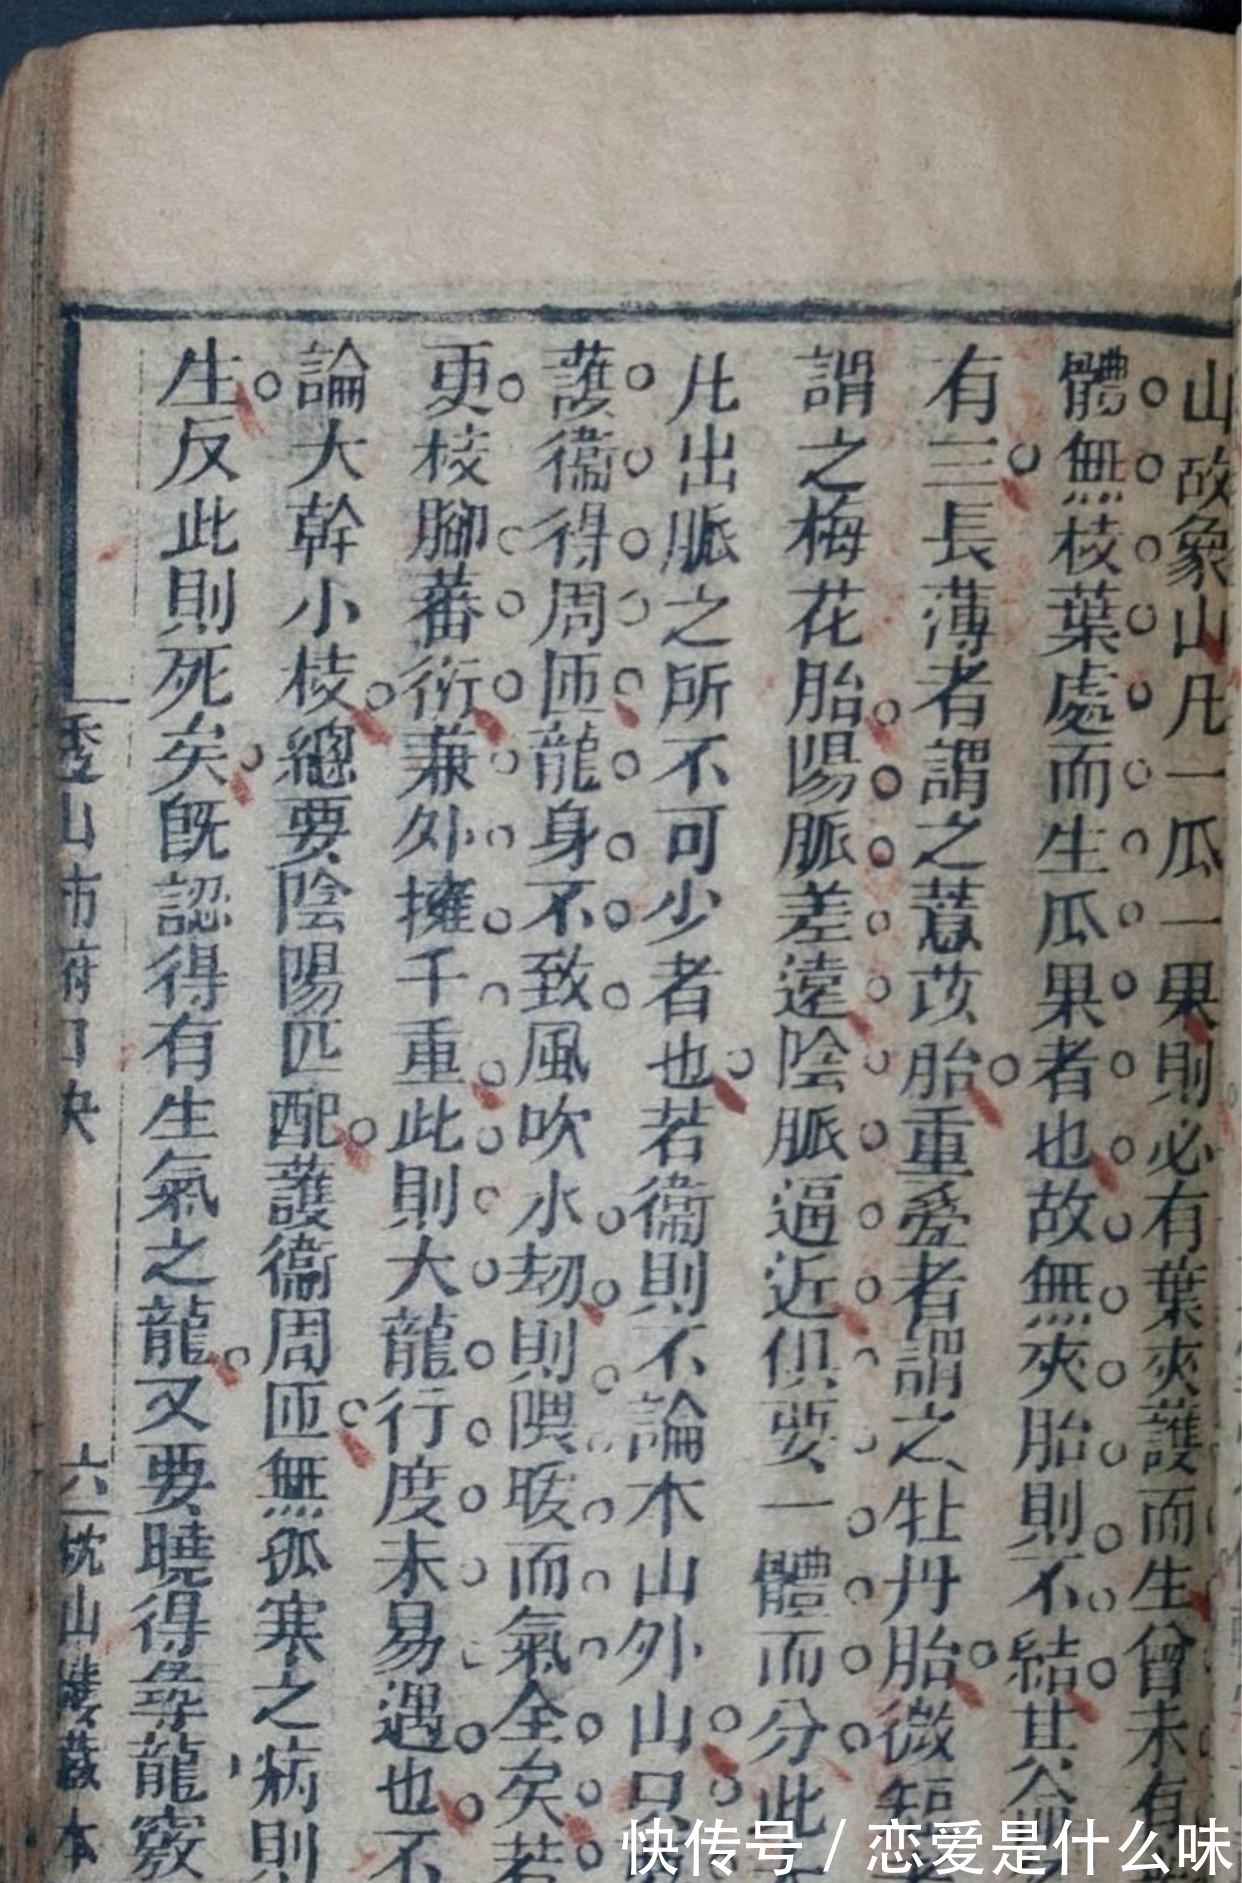 山故象山凡一瓜一果則必有葉夾護而生曾未有
體無枝葉處而生瓜果者也故無夾胎則不結其命
有三長薄者謂之薏苡胎重愛者謂之牡丹胎微短
謂之梅花胎陽脈差遠陰脈逼近俱要一體而分此
凡出脈之所不可少者也若衞則不論本山外山只
護衞得周匝龍身不致風吹水劫則隈暖而氣全矣若
更枝腳蕃衍兼外擁千重此則大龍行度未易遇也不
論大幹小枝總要陰陽匹配護衞周匝無孤寒之病則
生反此則死矣旣認得有生氣之龍又要曉得尋龍竅
透山市府口決
六
枕山樓藏本
快传号 / 恋爱是什么味